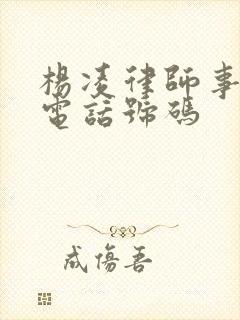 楊凌律師事
電話號碼
成傷吾